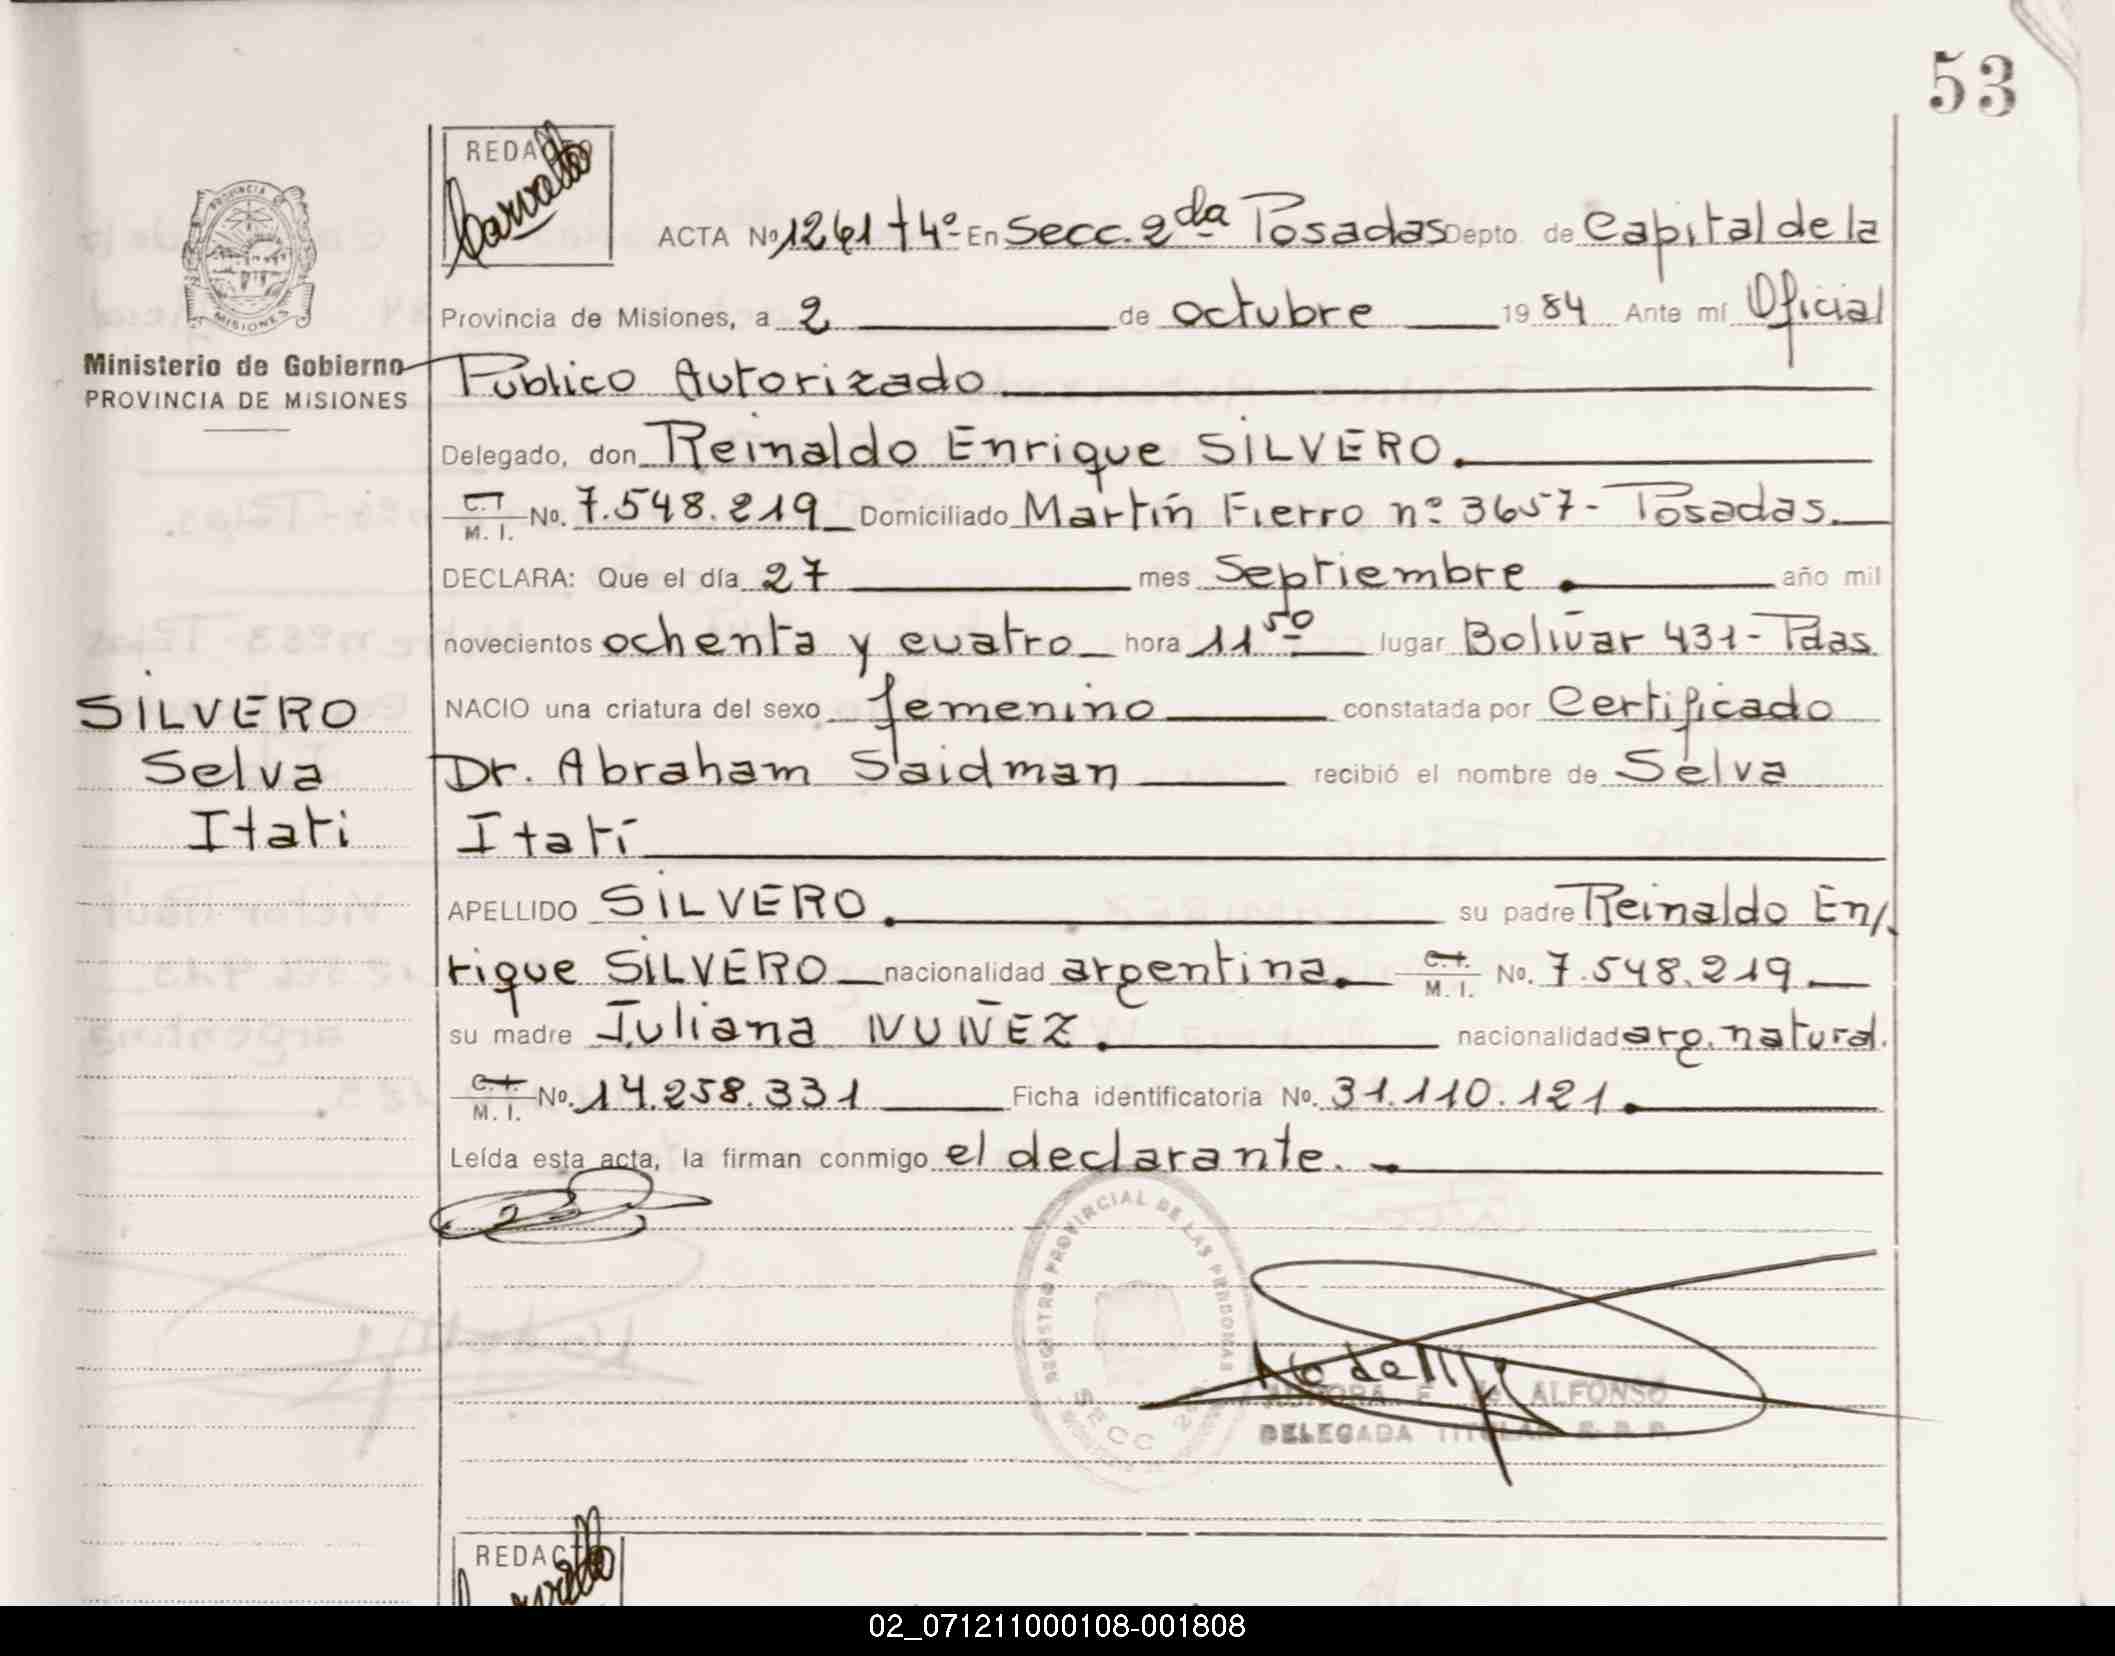 53
REDACTO
Carvallo
PROVINCIA
MISIONES
Ministerio de Gobierno
PROVINCIA DE MISIONES
ACTA No 1261 t 4º En Secc. 2da Posadas Depto. de Capital de la
Provincia de Misiones, a 2 de octubre 1984 Ante mí Oficial
Público Autorizado
Delegado, don Reinaldo Enrique SILVERO.
C.I. M. I. No. 7.548.219 Domiciliado Martín Fierro nº 3657- Posadas.
DECLARA: Que el día 27 mes Septiembre . año mil
novecientos ochenta y cuatro hora 11 50 lugar Bolívar 431- Pdas
NACIO una criatura del sexo femenino constatada por Certificado
Dr. Abraham Saidman recibió el nombre de Selva
Itatí
SILVERO
Selva
Itati
APELLIDO SILVERO. su padre Reinaldo En/.
rique SILVERO nacionalidad argentina. C.I. M. I. No. 7.548.219.
su madre Juliana NUÑEZ. nacionalidad arg. natural.
C.I. M. I. No. 14.258.331 Ficha identificatoria No. 31.110.121.
Leída esta acta, la firman conmigo el declarante.
REGISTRO PROVINCIAL DE LAS PERSONAS
SECC 2
AURORA F. de ALFONSO
DELEGADA TITULAR R. P. P.
REDACTO
Carvallo
02_071211000108-001808